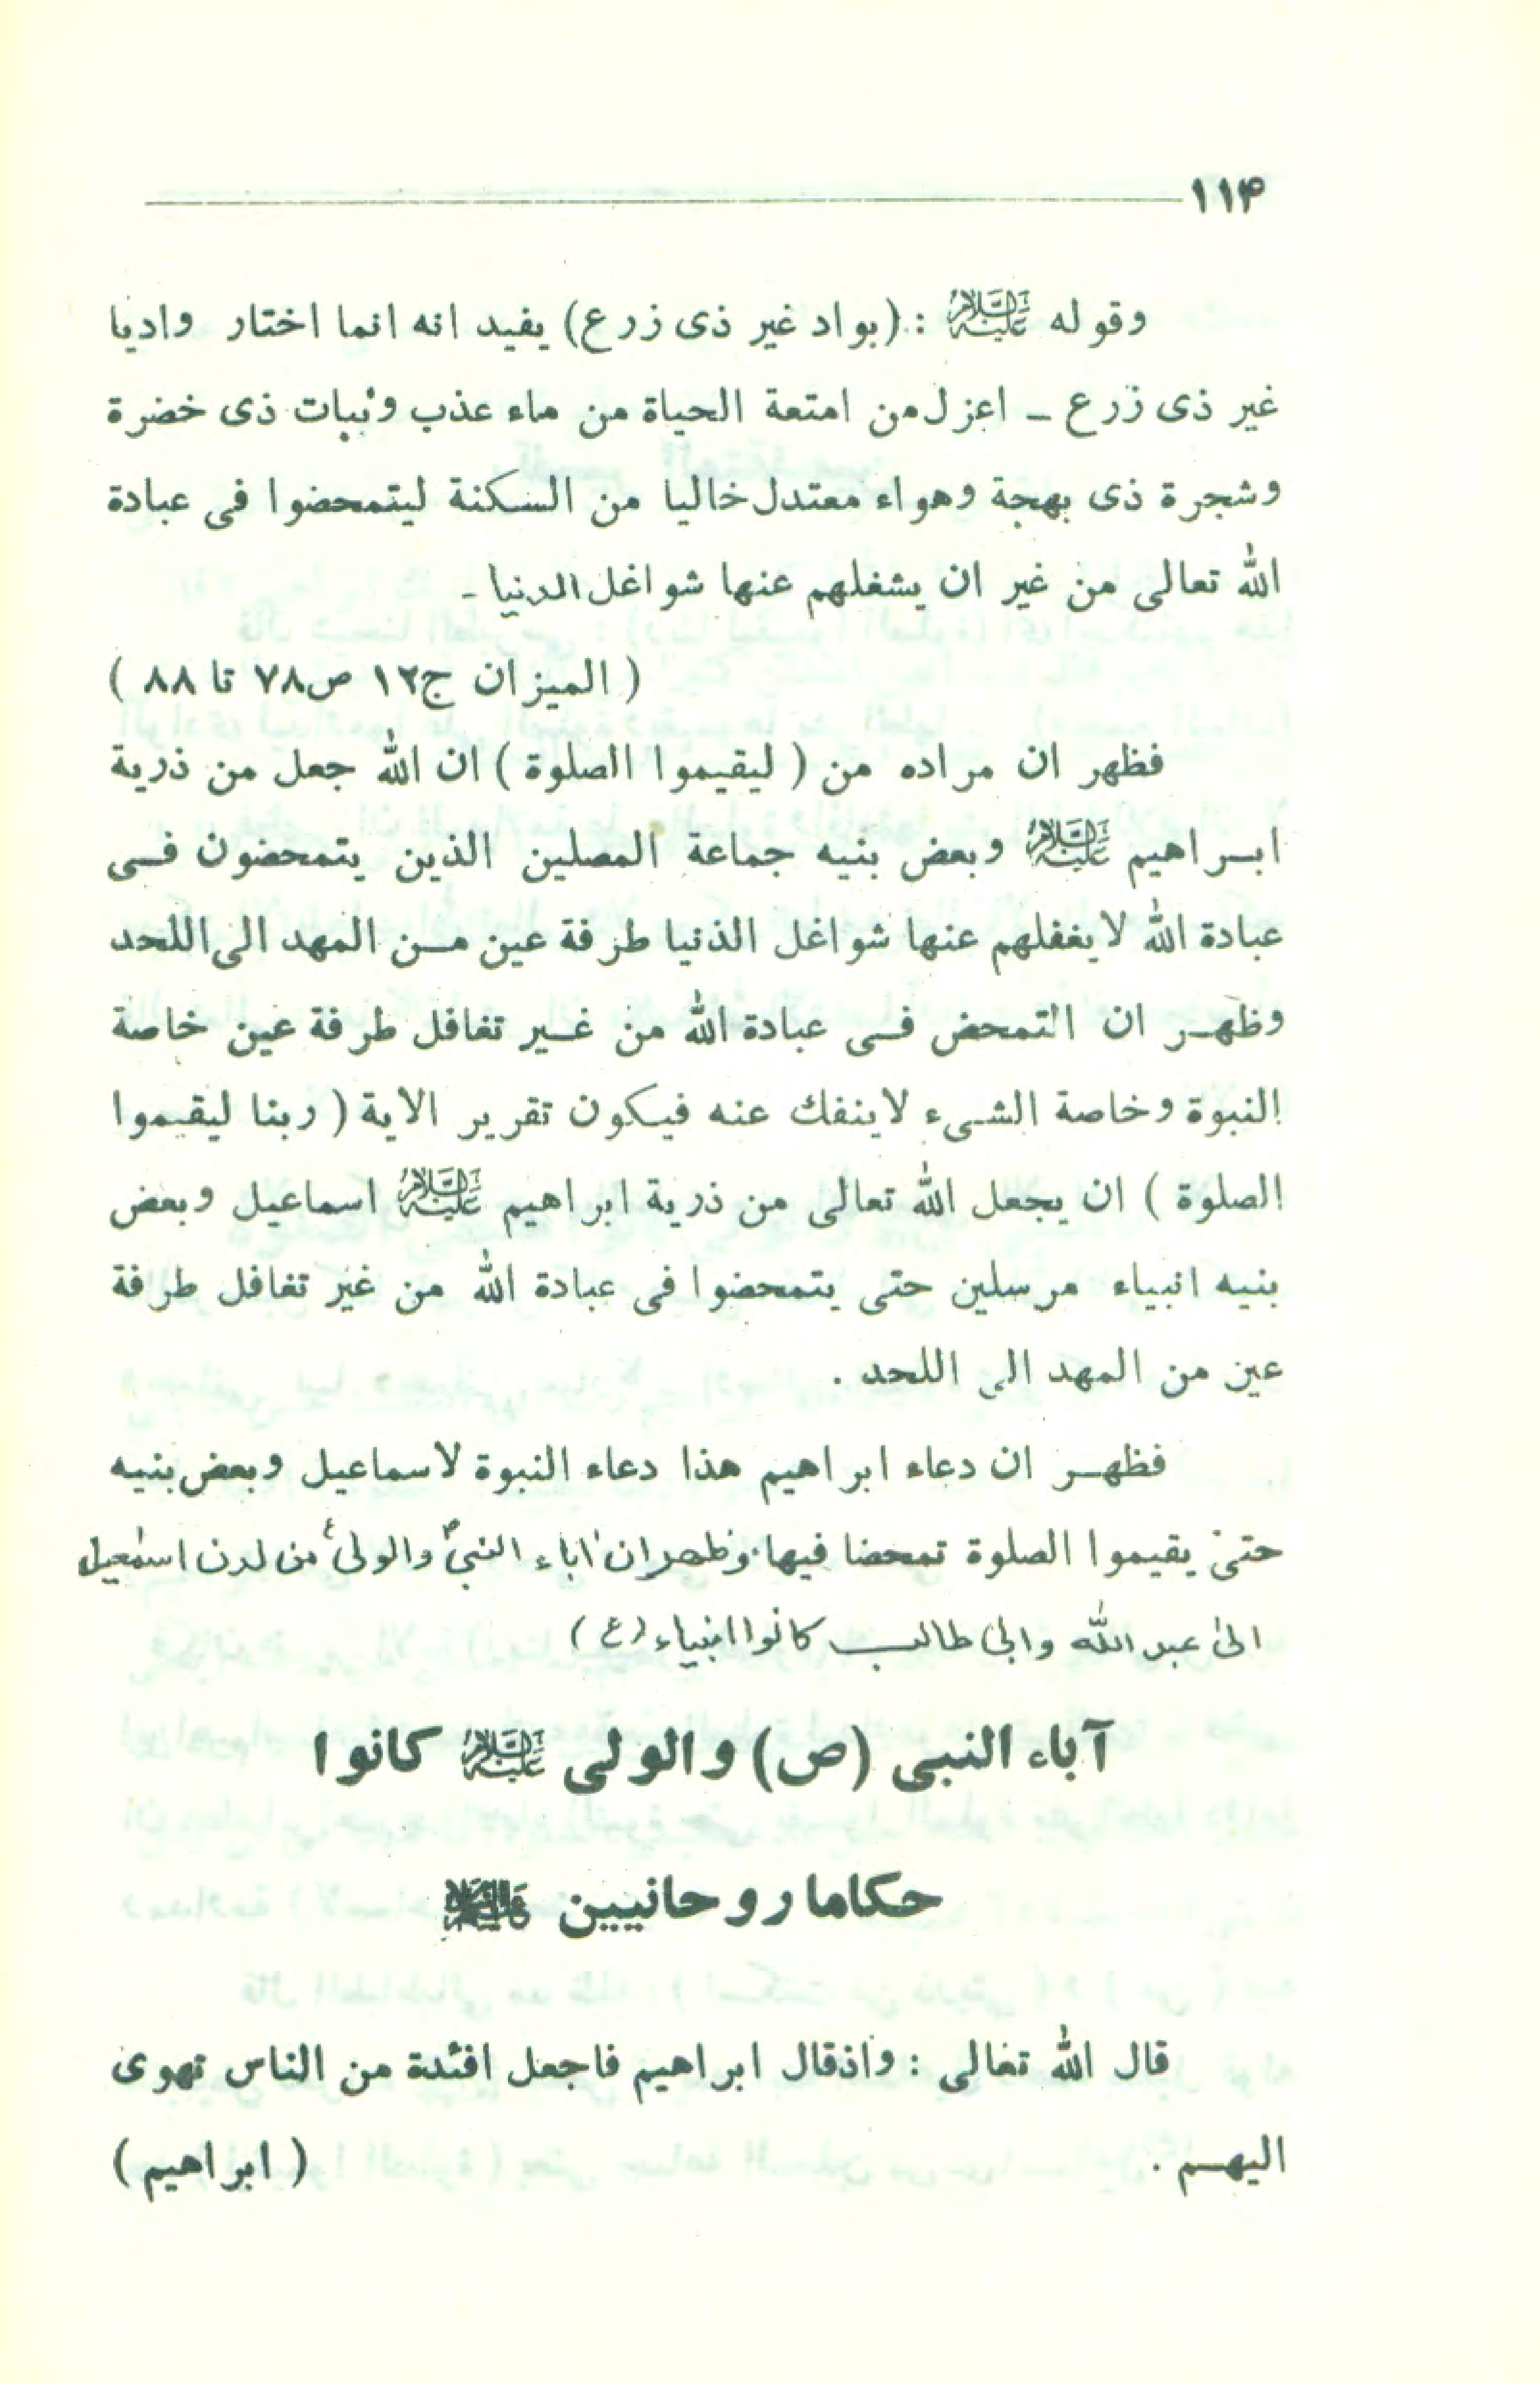 ۱۱۴
وقوله عَلَيْهِ السَّلام : (بواد غير ذى زرع) يفيد انه انما اختار واديا
غير ذى زرع ــ اعزل من امتعة الحياة من ماء عذب ونبات ذى خضرة
وشجرة ذى بهجة وهواء معتدل خاليا من السكنة ليتمحضوا فى عبادة
الله تعالى من غير ان يشغلهم عنها شواغل الدنيا ـ
( الميزان ج۱۲ ص۷۸ تا ۸۸ )
فظهر ان مراده من ( ليقيموا الصلوة ) ان الله جعل من ذرية
ابـراهيم عَلَيْهِ السَّلام وبعض بنيه جماعة المصلين الذين يتمحضون فـى
عبادة الله لايغفلهم عنها شواغل الذنيا طرفة عين مـن المهد الى اللحد
وظهـر ان التمحض فـى عبادة الله من غـير تغافل طرفة عين خاصة
النبوة وخاصة الشىء لاينفك عنه فيكون تقرير الاية ( ربنا ليقيموا
الصلوة ) ان يجعل الله تعالى من ذرية ابراهيم عَلَيْهِ السَّلام اسماعيل وبعض
بنيه انبياء مرسلين حتى يتمحضوا فى عبادة الله من غير تغافل طرفة
عين من المهد الى اللحد .
فظهـر ان دعاء ابراهيم هذا دعاء النبوة لاسماعيل وبعض بنيه
حتى يقيموا الصلوة تمحضا فيها. وظهر ان اباء النبیؐ والولیؑ من لدن اسمٰعيل
الیٰ عبد الله وابی طالب كانوا انبياء (ع)
آباء النبى (ص) والولى عَلَيْهِ السَّلام كانوا
حكاما روحانيين
قال الله تعالى : واذقال ابراهيم فاجعل افئدة من الناس تهوى
اليهـم . ( ابراهيم )